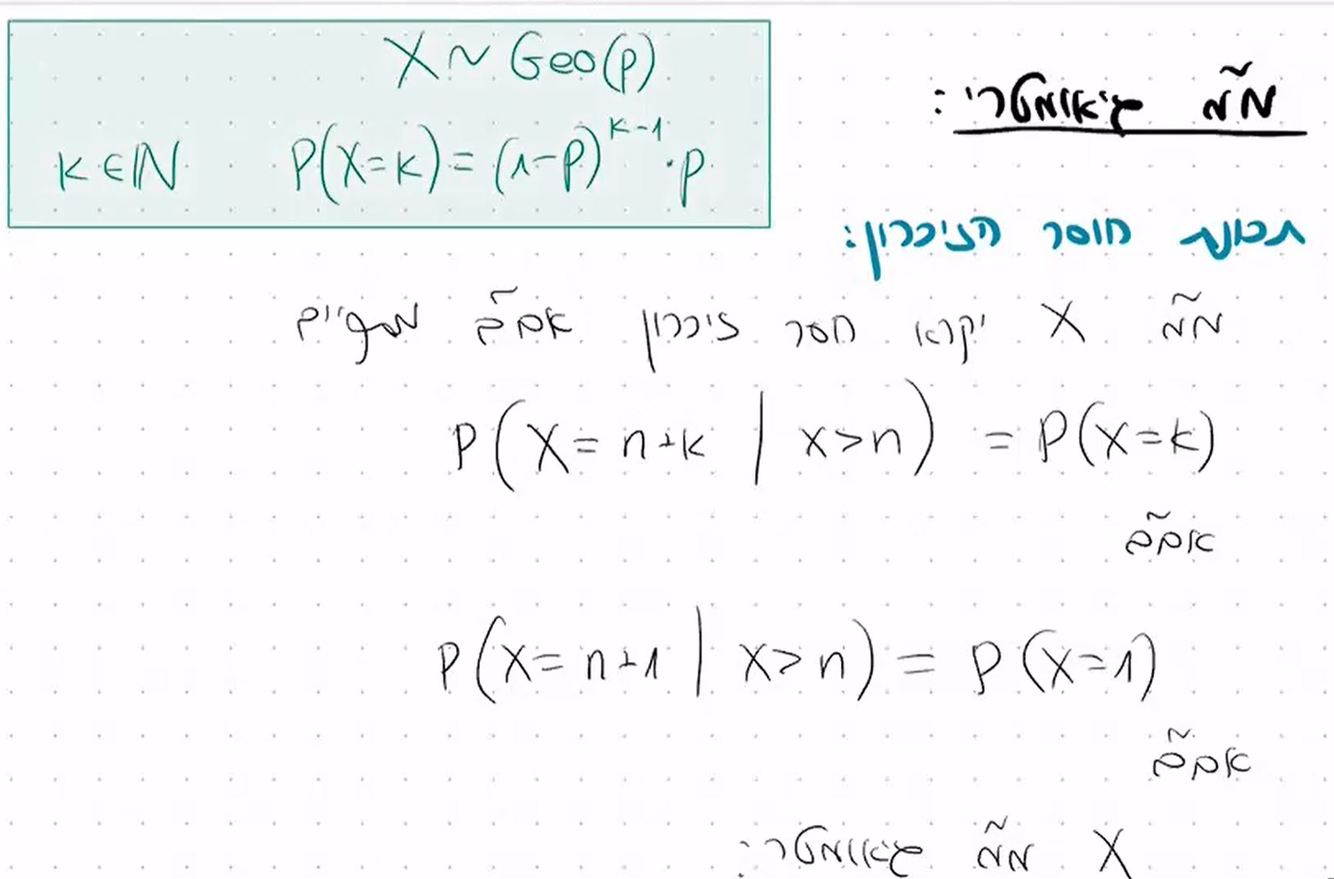 מ"מ גיאומטרי:
X ~ Geo(p)
k ∈ ℕ P(X=k) = (1-p)^{k-1} · p
תכונת חוסר הזיכרון:
מ"מ X יקרא חסר זיכרון אמ"מ מתקיים
P(X = n+k | X > n) = P(X=k)
אמ"מ
P(X = n+1 | X > n) = P(X=1)
אמ"מ
X מ"מ גיאומטרי: